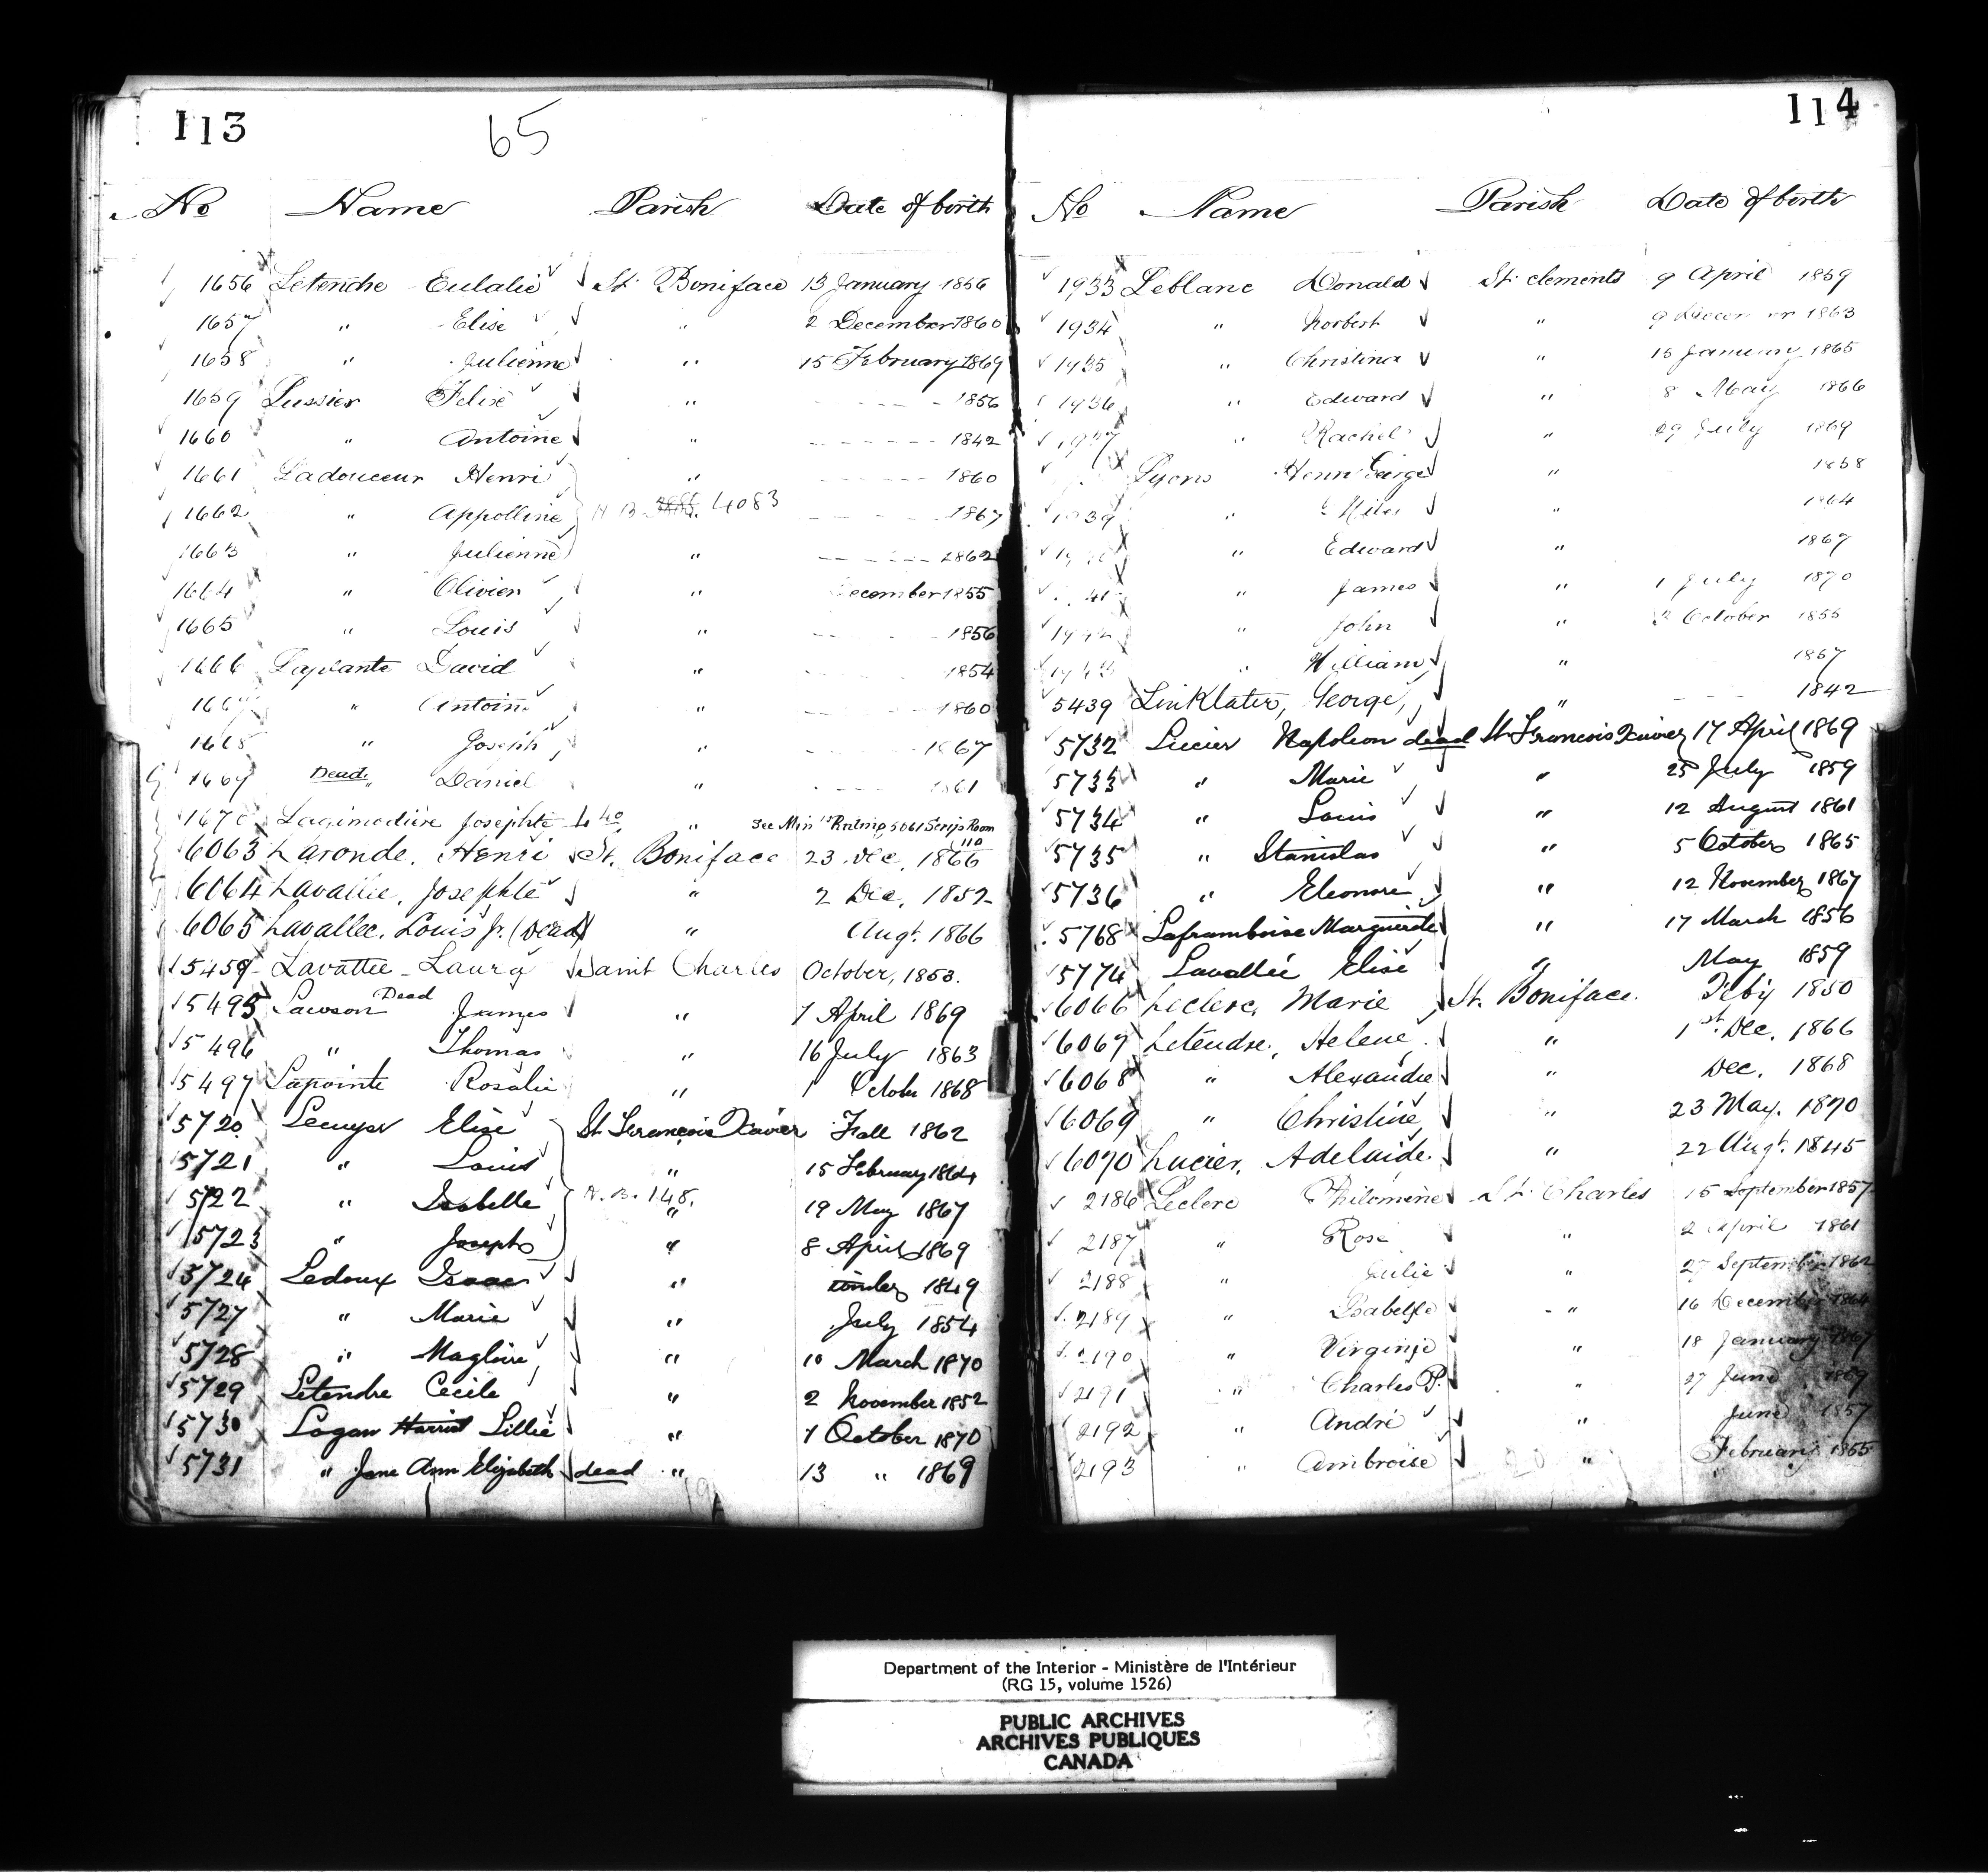 113
65
No Name Parish Date of birth
1656 Letendre Eulalie St. Boniface 13 January 1856
1657 " Elise " 2 December 1860
1658 " Julienne " 15 February 1869
1659 Lussier Felix " 1856
1660 " Antoine " 1842
1661 Ladouceur Henri " 1860
1662 " Appolline 4083 1867
1663 " Julienne " 1862
1664 " Olivier " December 1855
1665 " Louis " 1856
1666 Laplante David " 1854
1667 " Antoine " 1860
1668 " Joseph " 1867
1669 Dead " Daniel " 1861
1670 Lagimodière Josephte " See Min 5061 Scrip Room
110
6063 Laronde, Henri St. Boniface 23 Dec, 1866
6064 Lavallee, Josephte " 2 Dec, 1852
6065 Lavallee, Louis Jr. (Dead) " Augt. 1866
5459 Lavallee Laura Saint Charles October, 1853.
5495 Lawson Dead James " 7 April 1869
5496 " Thomas " 16 July 1863
5497 Lapointe Rosalie " 1 October 1868
5720 Lecuyer Elise St Francois Xavier Fall 1862
5721 " Louis " 15 February 1864
5722 " Isabelle N.B. 148. " 19 May 1867
5723 " Joseph " 8 April 1869
5724 Ledoux Isaac " 1849
5727 " Marie " July 1854
5728 " Magloire " 10 March 1870
5729 Letendre Cecile " 2 November 1852
5730 Logan Harriet Lillie " 7 October 1870
5731 " Jane Ann Elizabeth dead " 13 " 1869
114
No Name Parish Date of birth
1933 Leblanc Donald St. Clements 9 April 1859
1934 " Norbert " 9 December 1863
1935 " Christina " 15 January 1865
1936 " Edward " 8 May 1866
1937 " Rachel " 29 July 1869
Lyons Henri George " 1858
1939 " Miles " 1864
" Edward " 1867
41 " James " 1 July 1870
1942 " John " October 1855
1943 " William " 1867
5439 Linklater, George, " 1842
5732 Lucier Napoleon dead St Francois Xavier 17 April 1869
5733 " Marie " 25 July 1859
5734 " Louis " 12 August 1861
5735 " Stanislas " 5 October 1865
5736 " Eleonore " 12 November 1867
5768 Laframboise Marguerite " 17 March 1856
5774 Lavallée Elise " May 1859
6066 Leclerc, Marie St. Boniface. Feby 1850
6067 Letendre, Helene " 1st. Dec. 1866
6068 " Alexandre " Dec. 1868
6069 " Christine " 23 May. 1870
6070 Lucier, Adelaide. " 22 Augt. 1845
2186 Leclerc Philomene St. Charles 15 September 1857
2187 " Rose " 2 April 1861
2188 " Julie " 27 September 1862
2189 " Isabelle " 16 December 1864
2190 " Virginie " 18 January 1867
2191 " Charles P. " 27 June 1869
2192 " André " June 1857
2193 " Ambroise " February 1855
Department of the Interior - Ministère de l'Intérieur
(RG 15, volume 1526)
PUBLIC ARCHIVES
ARCHIVES PUBLIQUES
CANADA